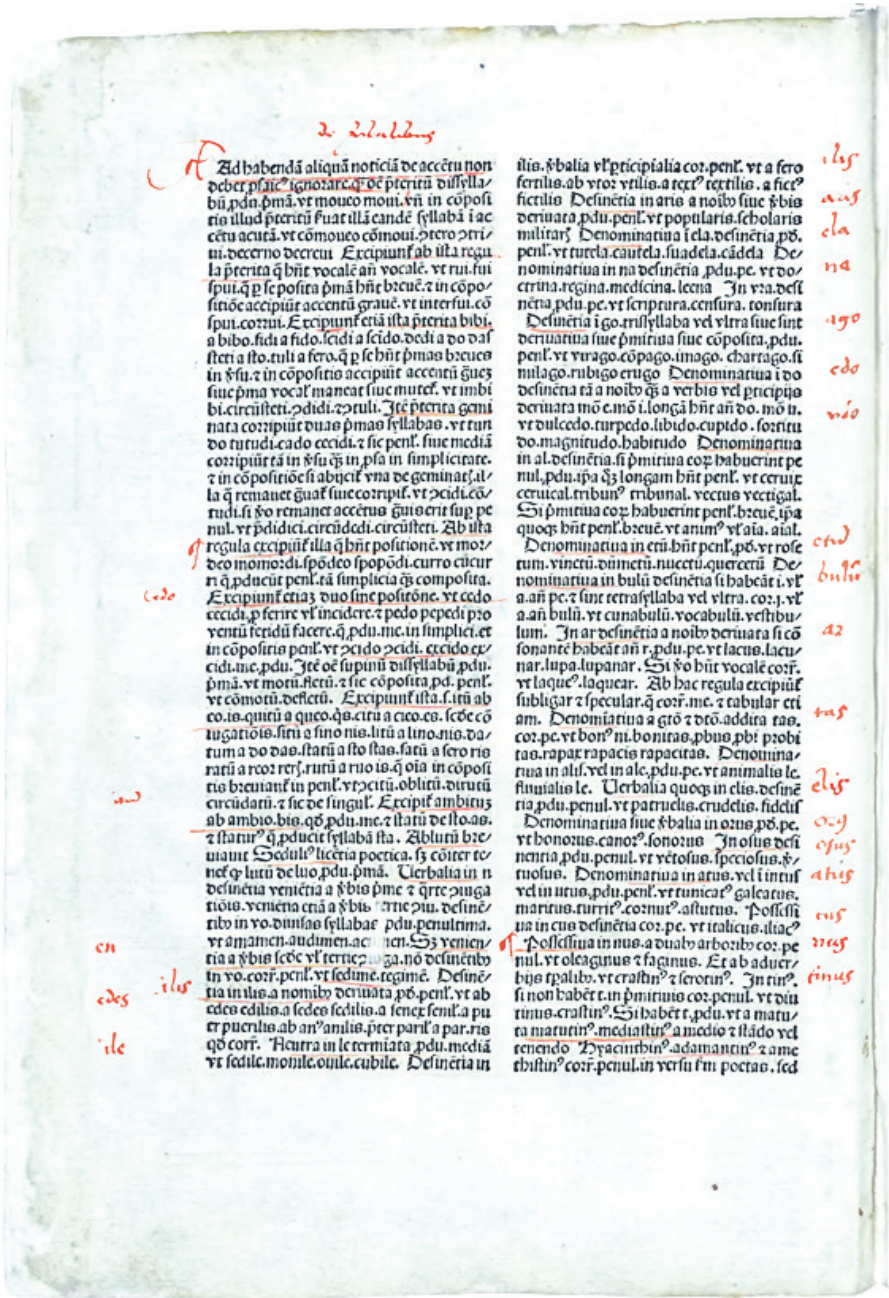 Ad habendā aliquā noticiā de accētu non
debet ꝓsaicꝰ ignorare. ꝙ oē p̄teritū dissylla/
bū ꝓdu. p̄mā. vt moueo moui. vñ in cōposi
tis illud p̄teritū ẜuat illā eandē syllabā ī ac
cētu acutā. vt cōmoueo cōmoui. ꝯtero ꝯtri/
ui. decerno decreui Excipiunt̄ ab ista regu
la p̄terita q̄ hn̄t vocalē añ vocalē. vt rui. fui
spui. q̄ ꝑ se posita p̄mā hn̄t breuē. ⁊ in cōpo/
sitiōe accipiūt accentū grauē. vt interfui. cō
spui. corrui. Excipiunt̄ etiā ista p̄terita bibi.
a bibo. fidi a fido. scidi a scīdo. dedi a do das
steti a sto. tuli a fero. q̄ ꝑ se hn̄t p̄mas breues
in ꝟsu. ⁊ in cōpositis accipiūt accentū
siue p̄ma vocal̄ maneat siue mutet̄. vt imbi
bi. circūsteti. ꝯdidi. ⁊ ꝯtuli. Itē p̄terita gemi
nata corripiūt duas p̄mas syllabas. vt tun
do tutudi. cado cecidi. ⁊ sic penl̄. siue mediā
corripiūt tā in ꝟsu ꝙ̄ in ꝓsa in simplicitate.
⁊ in cōpositiōe si abijcit̄ vna de geminatꝭ. il/
la q̄ remanet siue corripit̄. vt ꝯcidi. cō/
tudi. si ꝟo remanet accētus erit suꝑ pe
nul. vt p̄didici. circūdedi. circūsteti. Ab ista
regula excipiūt̄ illa q̄ hn̄t positionē. vt mor/
deo momordi. spōdeo spopōdi. curro cucur
ri q̄ ꝓducūt penl̄. tā simplicia ꝙ̄ composita.
Excipiunt̄ etiaꝫ duo sine positōne. vt cedo
cecidi. ꝑ ferire vl̄ incidere. ⁊ pedo pepedi pro
ventū fetidū facere. q̄ ꝓdu. me. in simplici. et
in cōpositis penl̄. vt ꝯcido ꝯcidi. excido ex/
cidi. me. ꝓdu. Itē oē supinū dissyllabū ꝓdu.
p̄mā. vt motū. fletū. ⁊ sic cōposita. ꝓd. penl̄.
vt cōmotū. defletū. Excipiunt̄ ista. s. itū ab
eo. is. quitū a queo. q̄s. citū a cieo. es. scd̄e cō
iugatiōis. sitū a sino nis. litū a lino. nis. da/
tum a do das. statū a sto stas. satū a sero ris
ratū a reor rerꝭ. rutū a ruo is. q̄ oīa in cōposi
tis breuiant̄ in penl̄. vt ꝯcitū. oblitū. dirutū
circūdatū. ⁊ sic de singul̄. Excipit̄ ambituꝫ
ab ambio. bis. qd̄ ꝓdu. me. ⁊ statū de sto. as.
⁊ staturꝰ q̄ ꝓducit syllabā sta. Ablutū bre/
uiauit Seduliꝰ licētia poetica. sꝫ cōiter te/
net̄ ꝙ lutū de luo. ꝓdu. p̄mā. Uerbalia in n
desinētia veniētia a ꝟbis p̄me ⁊ q̄rte ꝯiuga
tiōis. veniētia etiā a ꝟbis ꝯiu. desinē/
tibꝰ in vo. diuisas syllabas ꝓdu. penultima.
vt amamen. audimen. Sꝫ venien/
tia a ꝟbis scd̄e vl̄ tertie nō desinētibꝰ
in vo. corr̄. penl̄. vt sedimē. regimē. Desinē/
tia in ilis. a nomībꝰ deriuata ꝓd. penl̄. vt ab
edes edilis. a sedes sedilis. a senex senil̄. a pu
er puerilis. ab anꝰ anilis. p̄ter paril̄ a par. ris
qd̄ corr̄. Neutra in le termīata ꝓdu. mediā
vt sedile. monile. ouile. cubile. Desinētia in
ilis. ꝟbalia vl̄ ꝑticipialia cor. penl̄. vt a fero
fertilis. ab vtor vtilis. a textꝰ textilis. a fictꝰ
fictilis Desinētia in aris a noībꝰ siue ꝟbis
deriuata ꝓdu. penl̄. vt popularis. scholaris
militarꝭ Denominatiua ī ela. desinētia ꝓd.
penl̄. vt tutela. cautela. suadela. cādela De/
nominatiua in na desinētia ꝓdu. pe. vt do/
ctrina. regina. medicina. leena In vra. desi
nētia ꝓdu. pe. vt scriptura. censura. tonsura
Desinētia ī go. trissyllaba vel vltra siue sint
deriuatiua siue p̄mitiua siue cōposita, ꝓdu.
penl̄. vt virago. cōpago. imago. chartago. si
milago. rubigo erugo Denominatiua ī do
desinētia tā a noībꝰ ꝙ̄ a verbis vel ꝑticipijs
deriuata mō e. mō i. longā hn̄t añ do. mō u.
vt dulcedo. turpedo. libido. cupido. sortitu
do. magnitudo. habitudo Denominatiua
in al. desinētia. si p̄mitiua coꝝ habuerint pe
nul. ꝓdu. ip̄a ꝙ̄ꝫ longam hn̄t penl̄. vt ceruix
ceruical. tribunꝰ tribunal. vectus vectigal.
Si p̄mitiua coꝝ habuerint penl̄. breuē. ip̄a
quoqꝫ hn̄t penl̄. breuē. vt animꝰ vl̄ aīa. aīal.
Denominatiua in etū. hn̄t penl̄. ꝓd. vt rose
tum. vinetū. dumetū. nucetū. quercetū De/
nominatiua in bulū desinētia si habeāt i. vl̄
a. añ pe. ⁊ sint tetrasyllaba vel vltra. cor. i. vl̄
a. añ bulū. vt cunabulū. vocabulū. vestibu/
lum. In ar desinētia a noībꝰ deriuata si cō
sonantē habeāt añ r. ꝓdu. pe. vt lacus. lacu/
nar. lupa. lupanar. Si ꝟo hn̄t vocalē corr̄.
vt laqueꝰ. laquear. Ab hac regula excipiūt̄
subligar ⁊ specular. q̄ corr̄. me. ⁊ tabular eti
am. Denomīatiua a gtō ⁊ dtō. addita tas.
cor. pe. vt bonꝰ ni. bonitas. ꝓbus. ꝓbi probi
tas. rapax rapacis rapacitas. Denomina/
tiua in alis. vel in ale. ꝓdu. pe. vt animalis le.
fluuialis le. Uerbalia quoqꝫ in elis. desinē
tia ꝓdu. penul. vt patruelis. crudelis. fidelis
Denominatiua siue ꝟbalia in orus. ꝓd. pe.
vt honorus. canorꝰ. sonorus In osus desi
nentia ꝓdu. penul. vt vētosus. speciosus. ꝟ/
tuosus. Denominatiua in atus. vel ī intus
vel in utus, ꝓdu. penl̄. vt tunicatꝰ galeatus.
maritus. turritꝰ. cornutꝰ. astutus. Possessi
ua in cus desinētia cor. pe. vt italicus. iliacꝰ
Possessiua in nus. a duabꝰ arboribꝰ cor. pe
nul. vt oleaginus ⁊ faginus. Et ab aduer/
bijs tꝑalibꝰ. vt crastinꝰ ⁊ serotinꝰ. In tinꝰ.
si non habēt t. in p̄mitiuis cor. penul. vt diu
tinus. crastinꝰ. Si habēt t. ꝓdu. vt a matu/
ta matutinꝰ. mediastinꝰ a medio ⁊ stādo vel
tenendo Hyacinthinꝰ. adamantinꝰ ⁊ ame
thistinꝰ corr̄. penul. in versu ẜm poetas. sed
cedo
en
edes
ilis
ile
ilis
aris
ela
na
ago
edo
udo
etū
bulū
ar
tas
elis
orꝰ
osus
atus
cus
neus
tinus